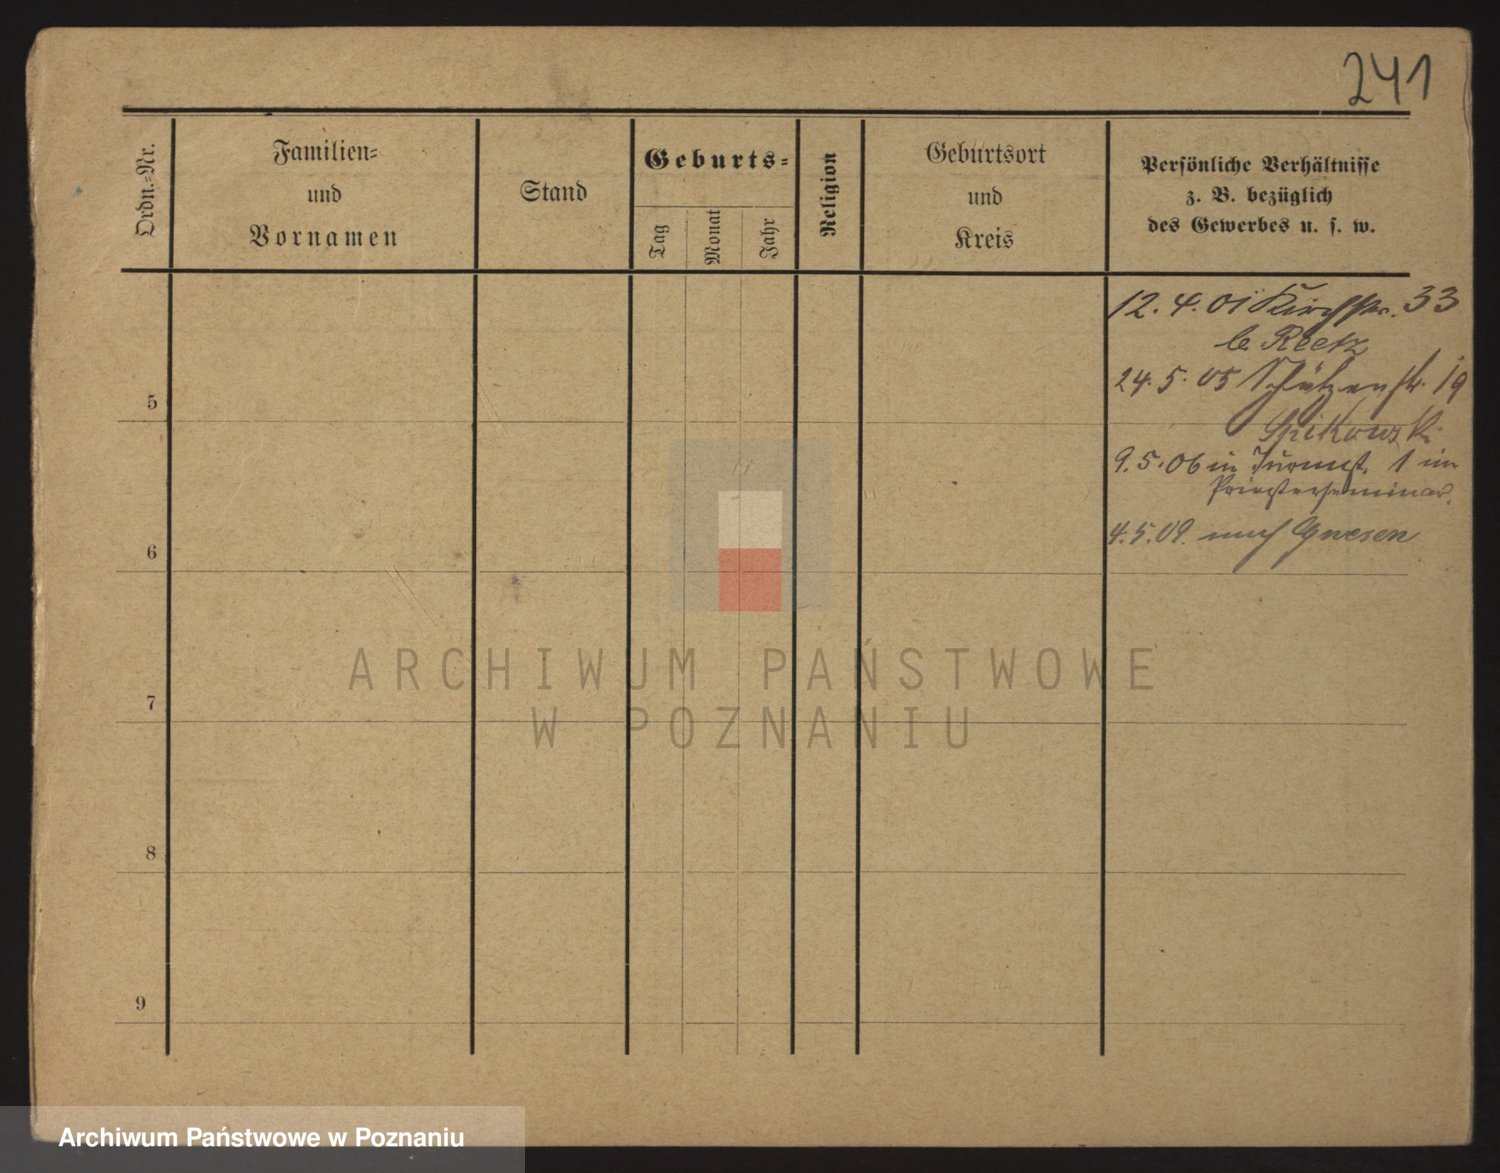 241
Ordn.-Nr.
Familien-
und
Vornamen
Stand
Geburts-
Tag
Monat
Jahr
Religion
Geburtsort
und
Kreis
Persönliche Verhältnisse
z. B. bezüglich
des Gewerbes u. s. w.
12. 4. 01 Kirchstr. 33
b. Reetz
24. 5. 05 Schützenstr. 19
5
9. 5. 06 in 1 im
Priesterseminar.
4. 5. 09. nach Gnesen
6
7
8
9
ARCHIWUM PAŃSTWOWE
W POZNANIU
Archiwum Państwowe w Poznaniu